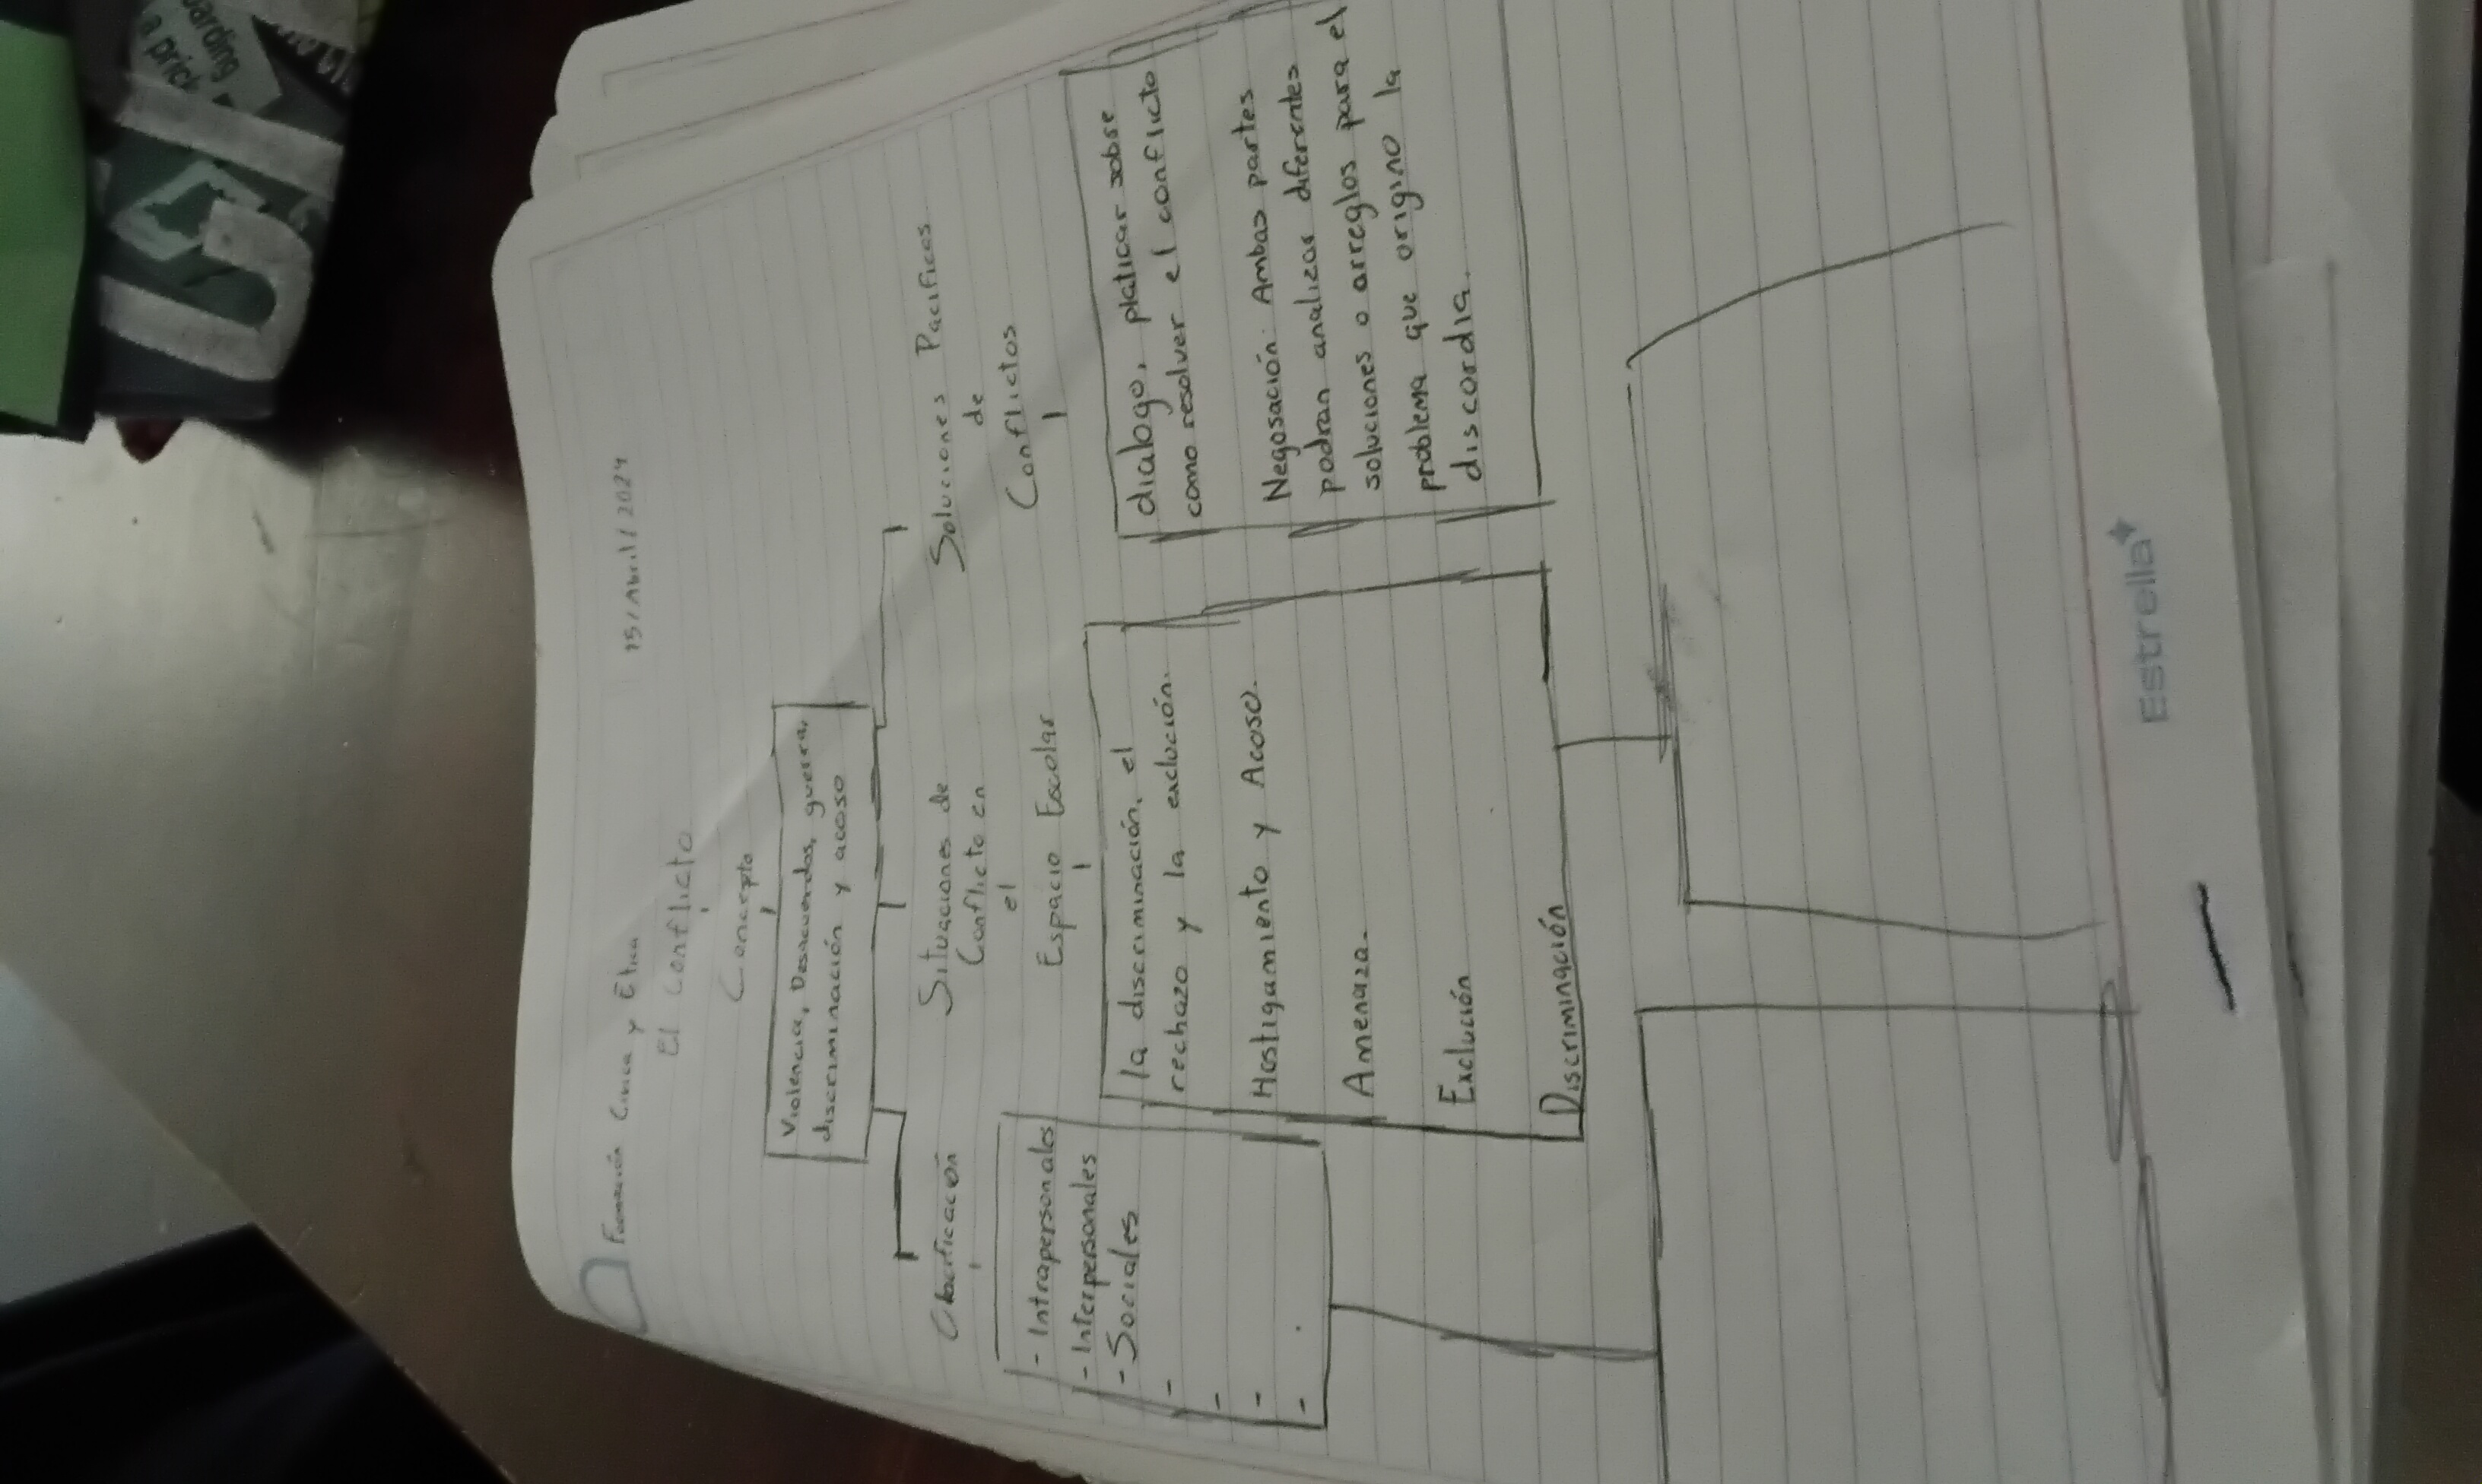 Formación Civica y Etica
15/Abril/2024
El Conflicto
Concepto
Violencia, Desacuerdos, guerra,
discriminación y acoso
Clasificación
- Intrapersonales
- Interpersonales
- Sociales
-
-
-
-
Situaciones de
Conflicto en
el
Espacio Escolar
la discriminación, el
rechazo y la exclución.
Hostigamiento y Acoso.
Amenaza.
Exclución
Discriminación
Soluciones Pacificas
de
Conflictos
dialogo, platicar sobre
como resolver el conflicto
Negosación: Ambas partes
podran analizar diferentes
soluciones o arreglos para el
problema que origino la
discordia.
Estrella
arding
a pric